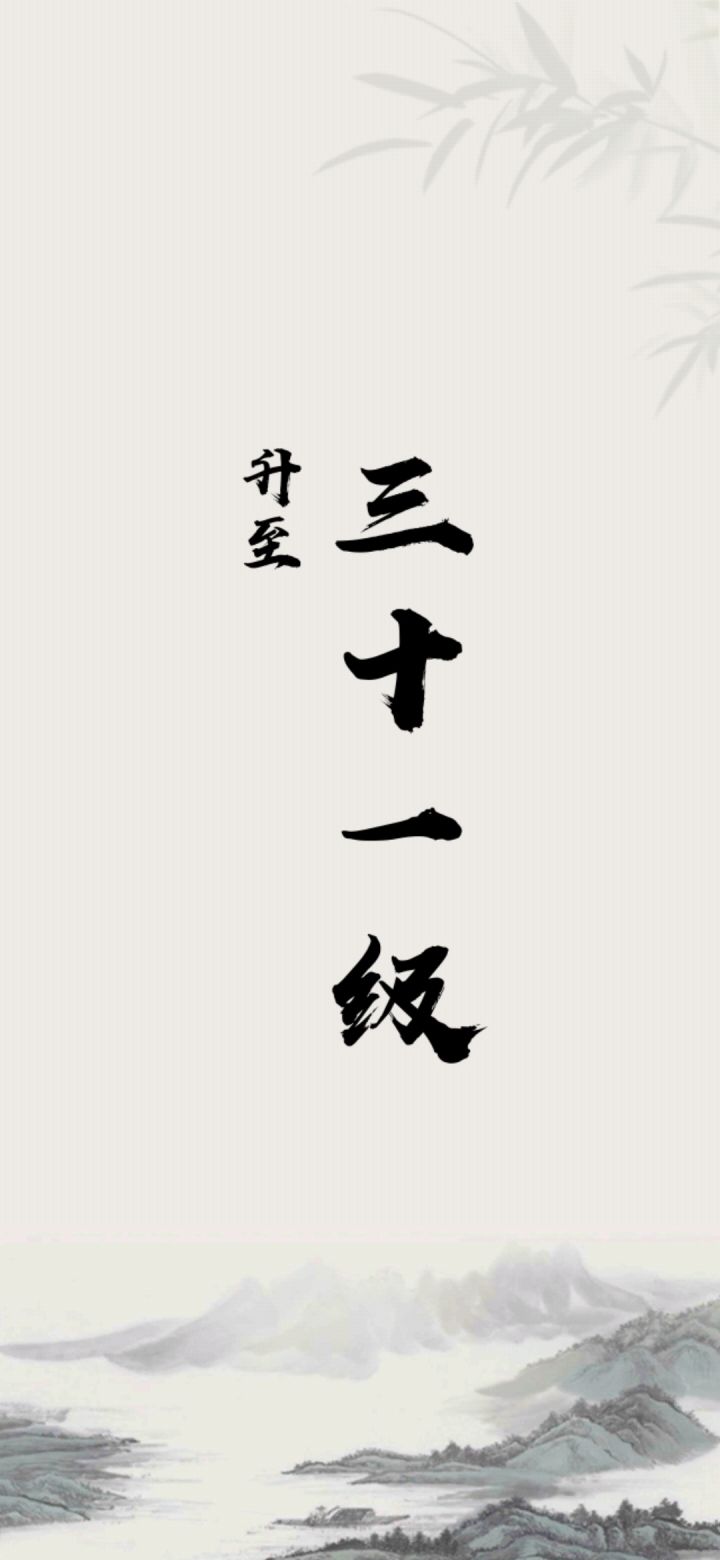 升至
三十一级